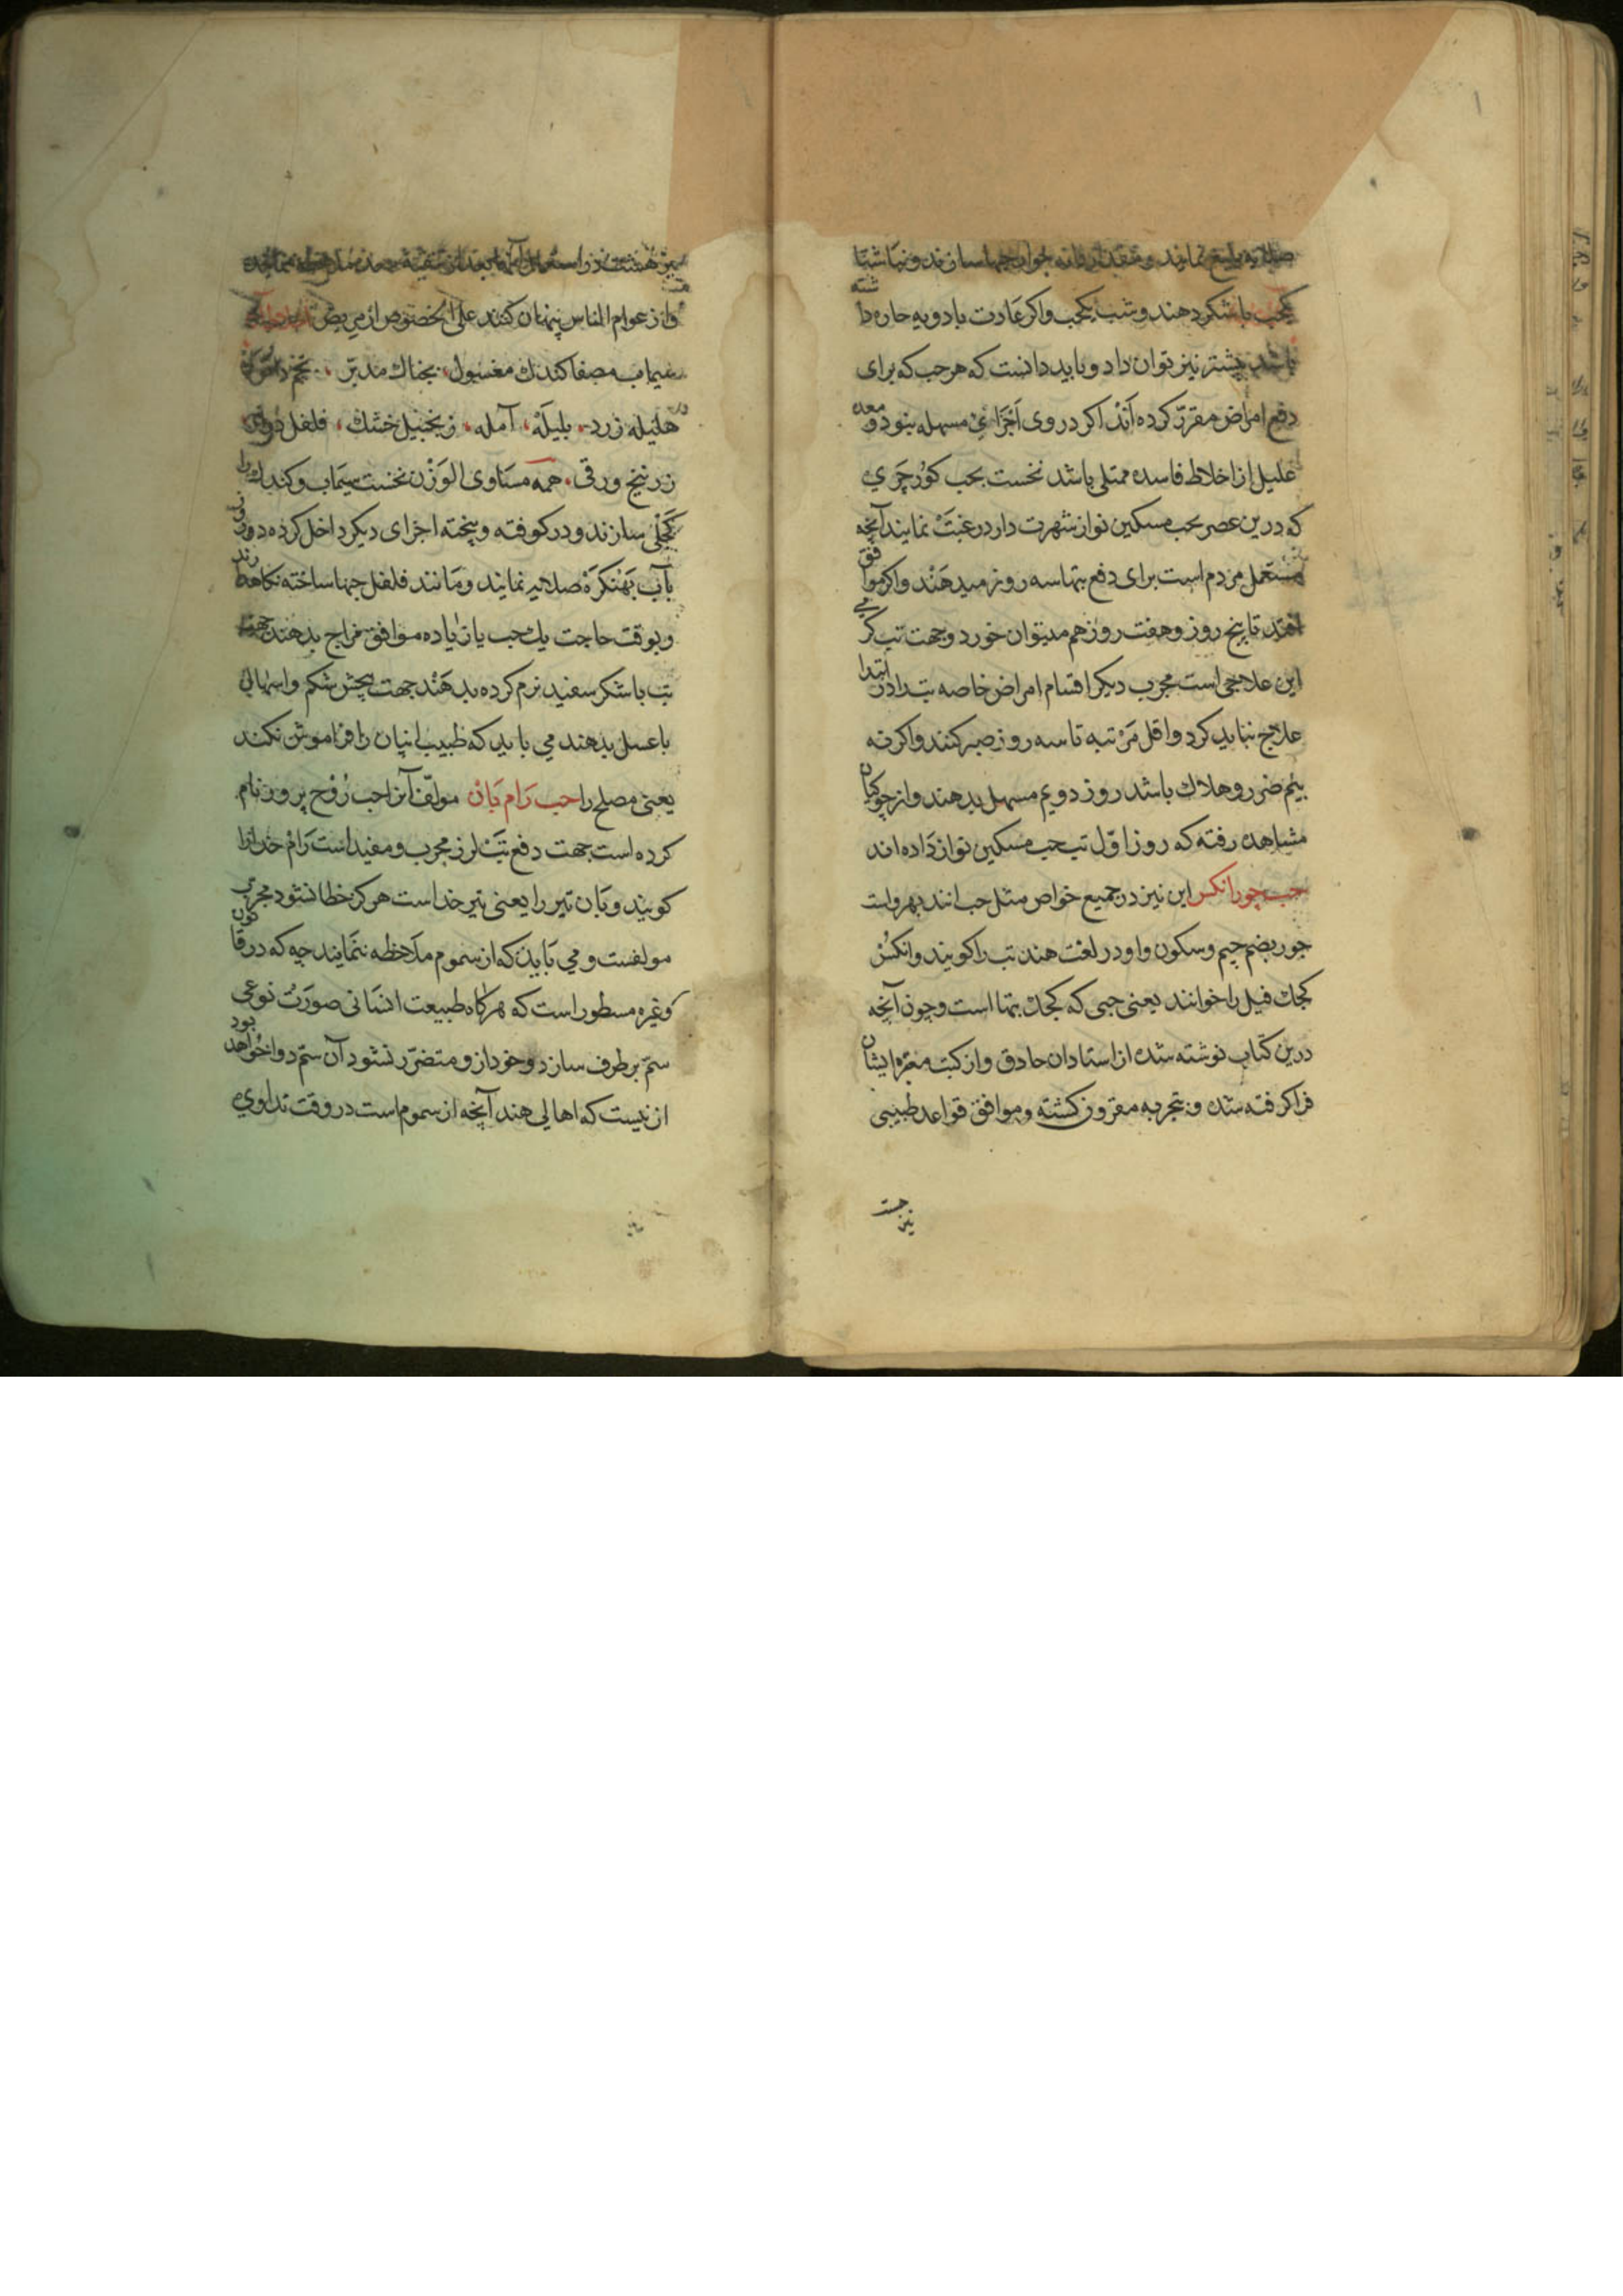 صلایه بلیغ نمایند و مقدار دانه جوار حبها سازند و نهار ناشتا
یکحب با شکر دهند و شب یکحب و اکر عادت بادویه حاره داشته
باشد بیشتر نیز توان داد و باید دانست که هر حب که برای
دفع امراض مقرّر کرده اَنْد اکر در وی اَجْزائی مسهله بنود و معده
علیل از اخلاط فاسده ممتلی باشد نخست بحب کوُرجَرَی
که درین عصر بحب مسکین نواز شهرت دارد رغبتْ نمایند آنچه
مستعمل مردم است برای دفع تبها سه روز میدهَنْد و اکر موافق
افتد تا پنج روز و هفت روز هم میتوان خورد و جهت تب کرمی
این علاجی است مجرب دیکر اقسام امراض خاصه تب را در ابتدا
علاج نباید کرد و اقل مَرْتبه تا سه روز صبر کنند و اکر نه
بیم ضرر و هلاك باشد روز دویم مسهل بدهند و از جوکیان
مشاهده رفته که روز اوّل تب حب مسکین نواز دَاده اند
حب جور انکس این نیز در جمیع خواص مثل حب انند بهرو است
جور بضم جیم و سکون واو در لغت هند تب را کویند و انکسْ
کجك فیل را خوانند یعنی حبی که کجك تبها است و چون آنچه
درین کتاب نوشته شده از استادان حاذق و از کتب معتبره ایشان
فرا کرفته شده و بتجربه مقرون کشته و موافق قواعد طبیبی
نیز هست
نیز هست در استعمال آنها بعد از تنقیه
و از عوام الناس پنهان کنند علی الخصوص از مریض
سیماب مصفا کندك مغسول، بچناك مدبّر، تخم
هلیله زرد، بلیلَه، آمله، زنجبیل خشك، فلفل دراز
زرنیخ ورقی، همه مساوی الوَزْن نخست سیمَاب و کندك را
کَجلْی سازند و در کوفته و پخته اجزای دیکر داخل کرده دو روز
بآب بَهْنکَرَه صلایه نمایند و مَانند فلفل حبها ساخته نکاهدارند
و بوقت حاجت یك حب یا زیاده موافق مزاج بدهند جهت
تب با شکر سفید نرم کرده بدهَنْد جهت پیچش شکم و اسهال
با عسل بدهند می باید که طبیب انپان را فراموش نکند
یعنی مصلح را حب رَام بَانْ مولّف آنرا حب رُوْح پرور نام
کرده است جهت دفع تبْ لرز مجرب و مفید است رَامْ خدا را
کویند و بَان تیر را یعنی تیر خدا است هرکز خطا نشود مجرب
مولفست و می بَاید که از سموم ملَاحظه ننمَایند چه که در قانون
و غیره مسطور است که هر کاه طبیعت انسَانی صورَتْ نوعی
ستم بر طرف سازد و خود از و متضرّر نشود آن ستم دوا خواهد بود
ازنیست که اهالی هند آنچه از سموم است در وقت تداوی